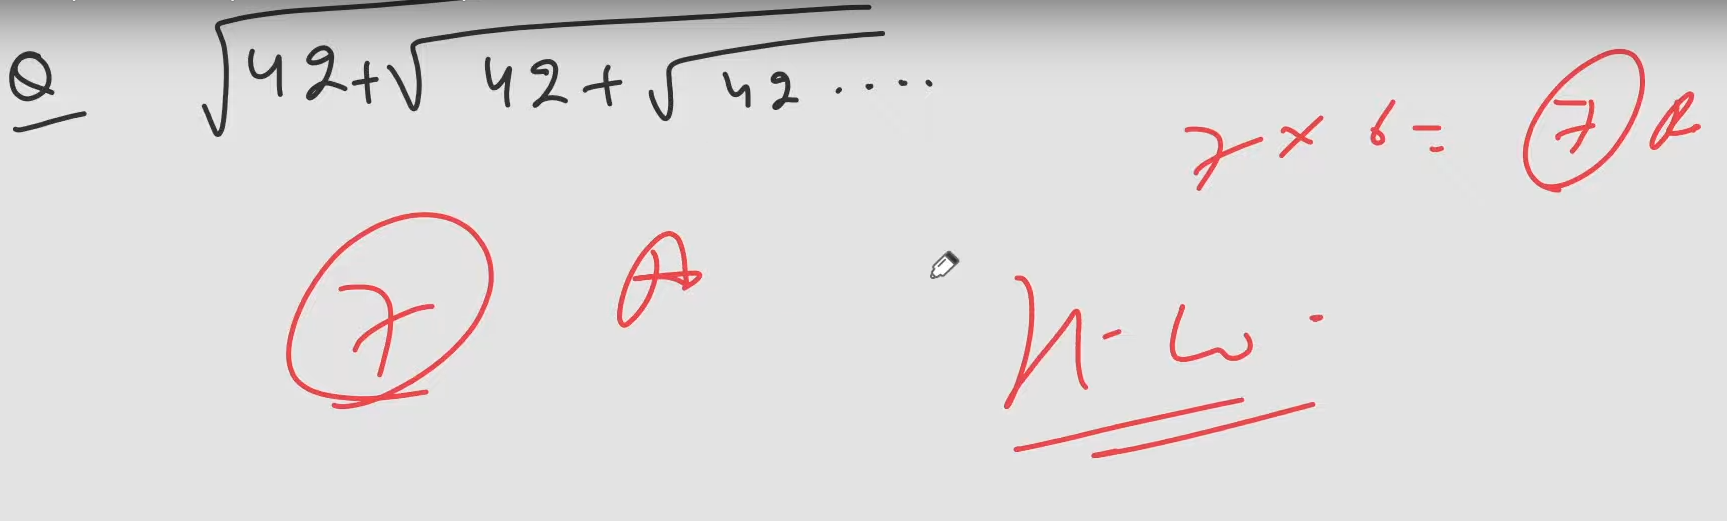 Q √42+√42+√42....
7 × 6 = 7
7 A
H.W.